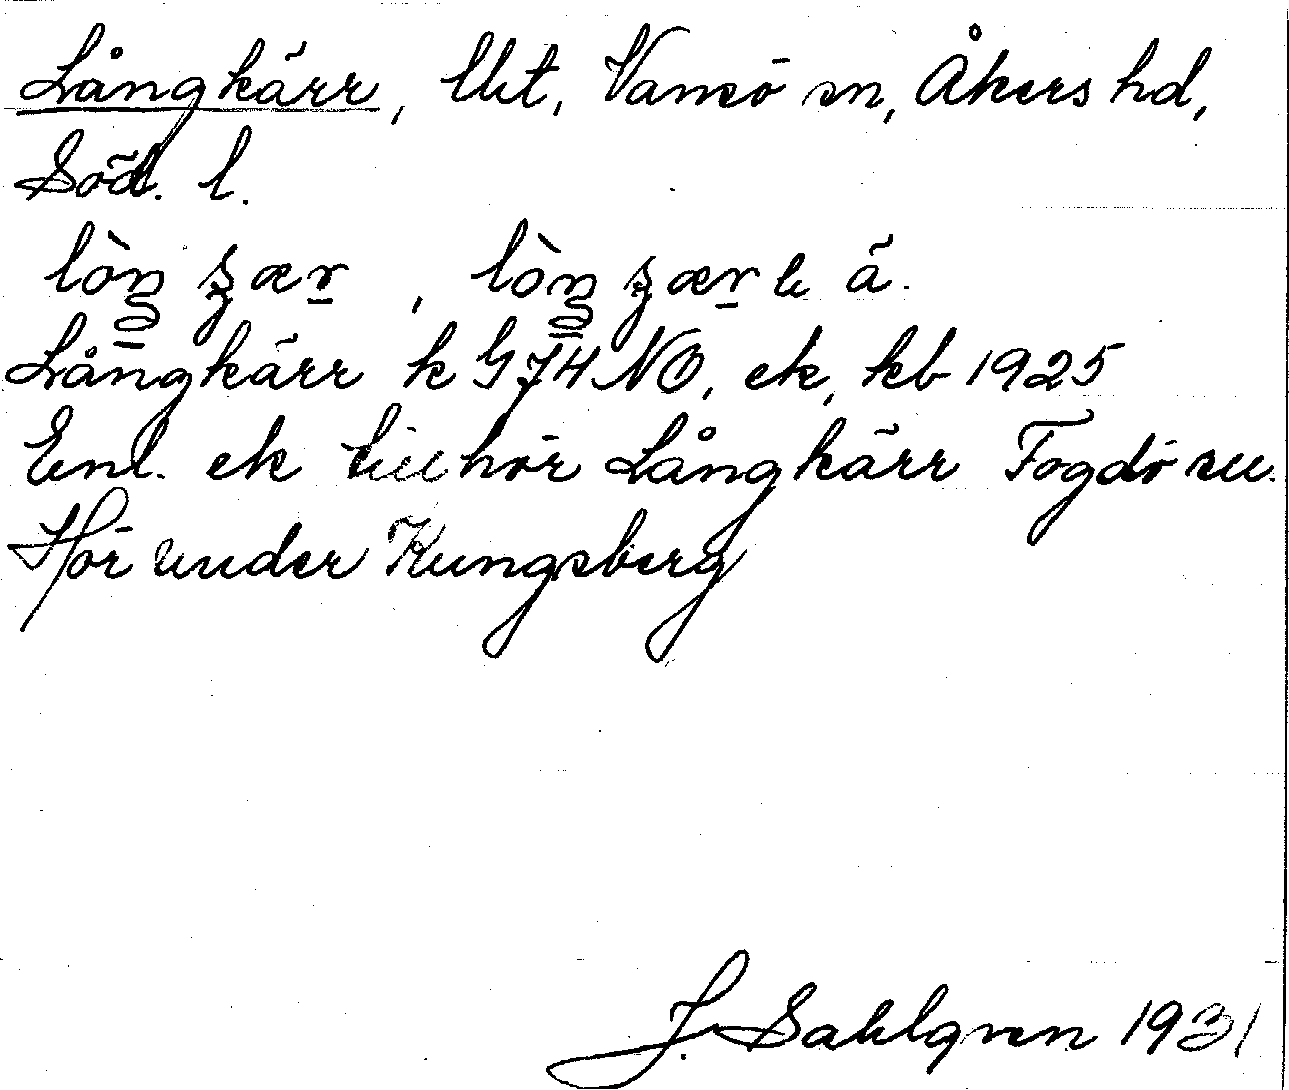 Långkärr, lht, Vansö sn, Åkers hd,
Söd. l.
Långkärr k GJ4 NO, ek, kb 1925
Enl. ek tillhör Långkärr Fogdö sn.
Hör under Kungsberg
J. Sahlgren 1931